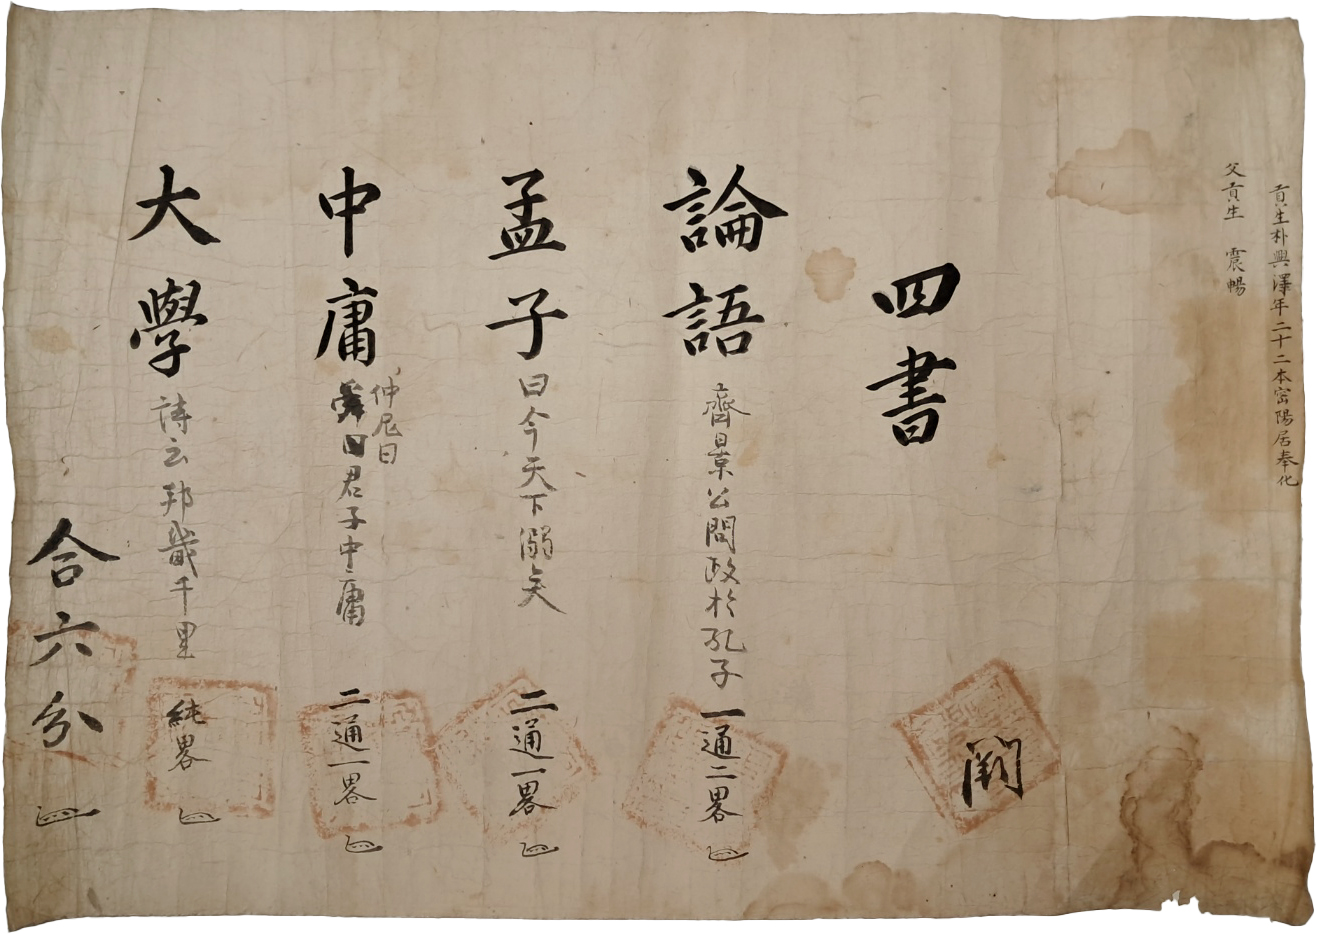 貢生朴興澤年二十二本密陽居奉化
父貢生　震暢
四書
論語 齊景公問政於孔子 一通二畧
孟子 曰今天下溺矣 二通一畧
中庸 仲尼曰 君子中庸 二通一畧
大學 詩云邦畿千里 純畧
合六分